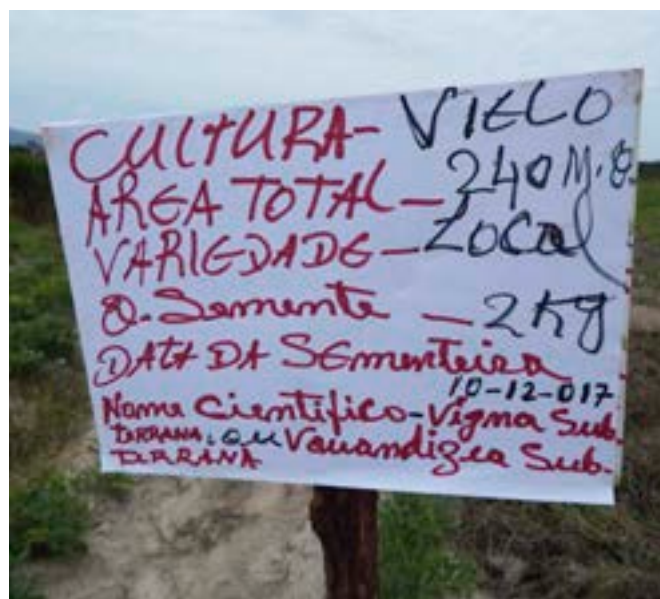 CULTURA- VIELO
AREA TOTAL - 240 M.Q.
VARIEDADE - LOCAL
Q. Semente - 2 Kg
DATA DA SEmenteira
10-12-017
Nome Cientifico-Vigna Sub.
TARRANA. ou Vauandigea Sub.
TARRANA